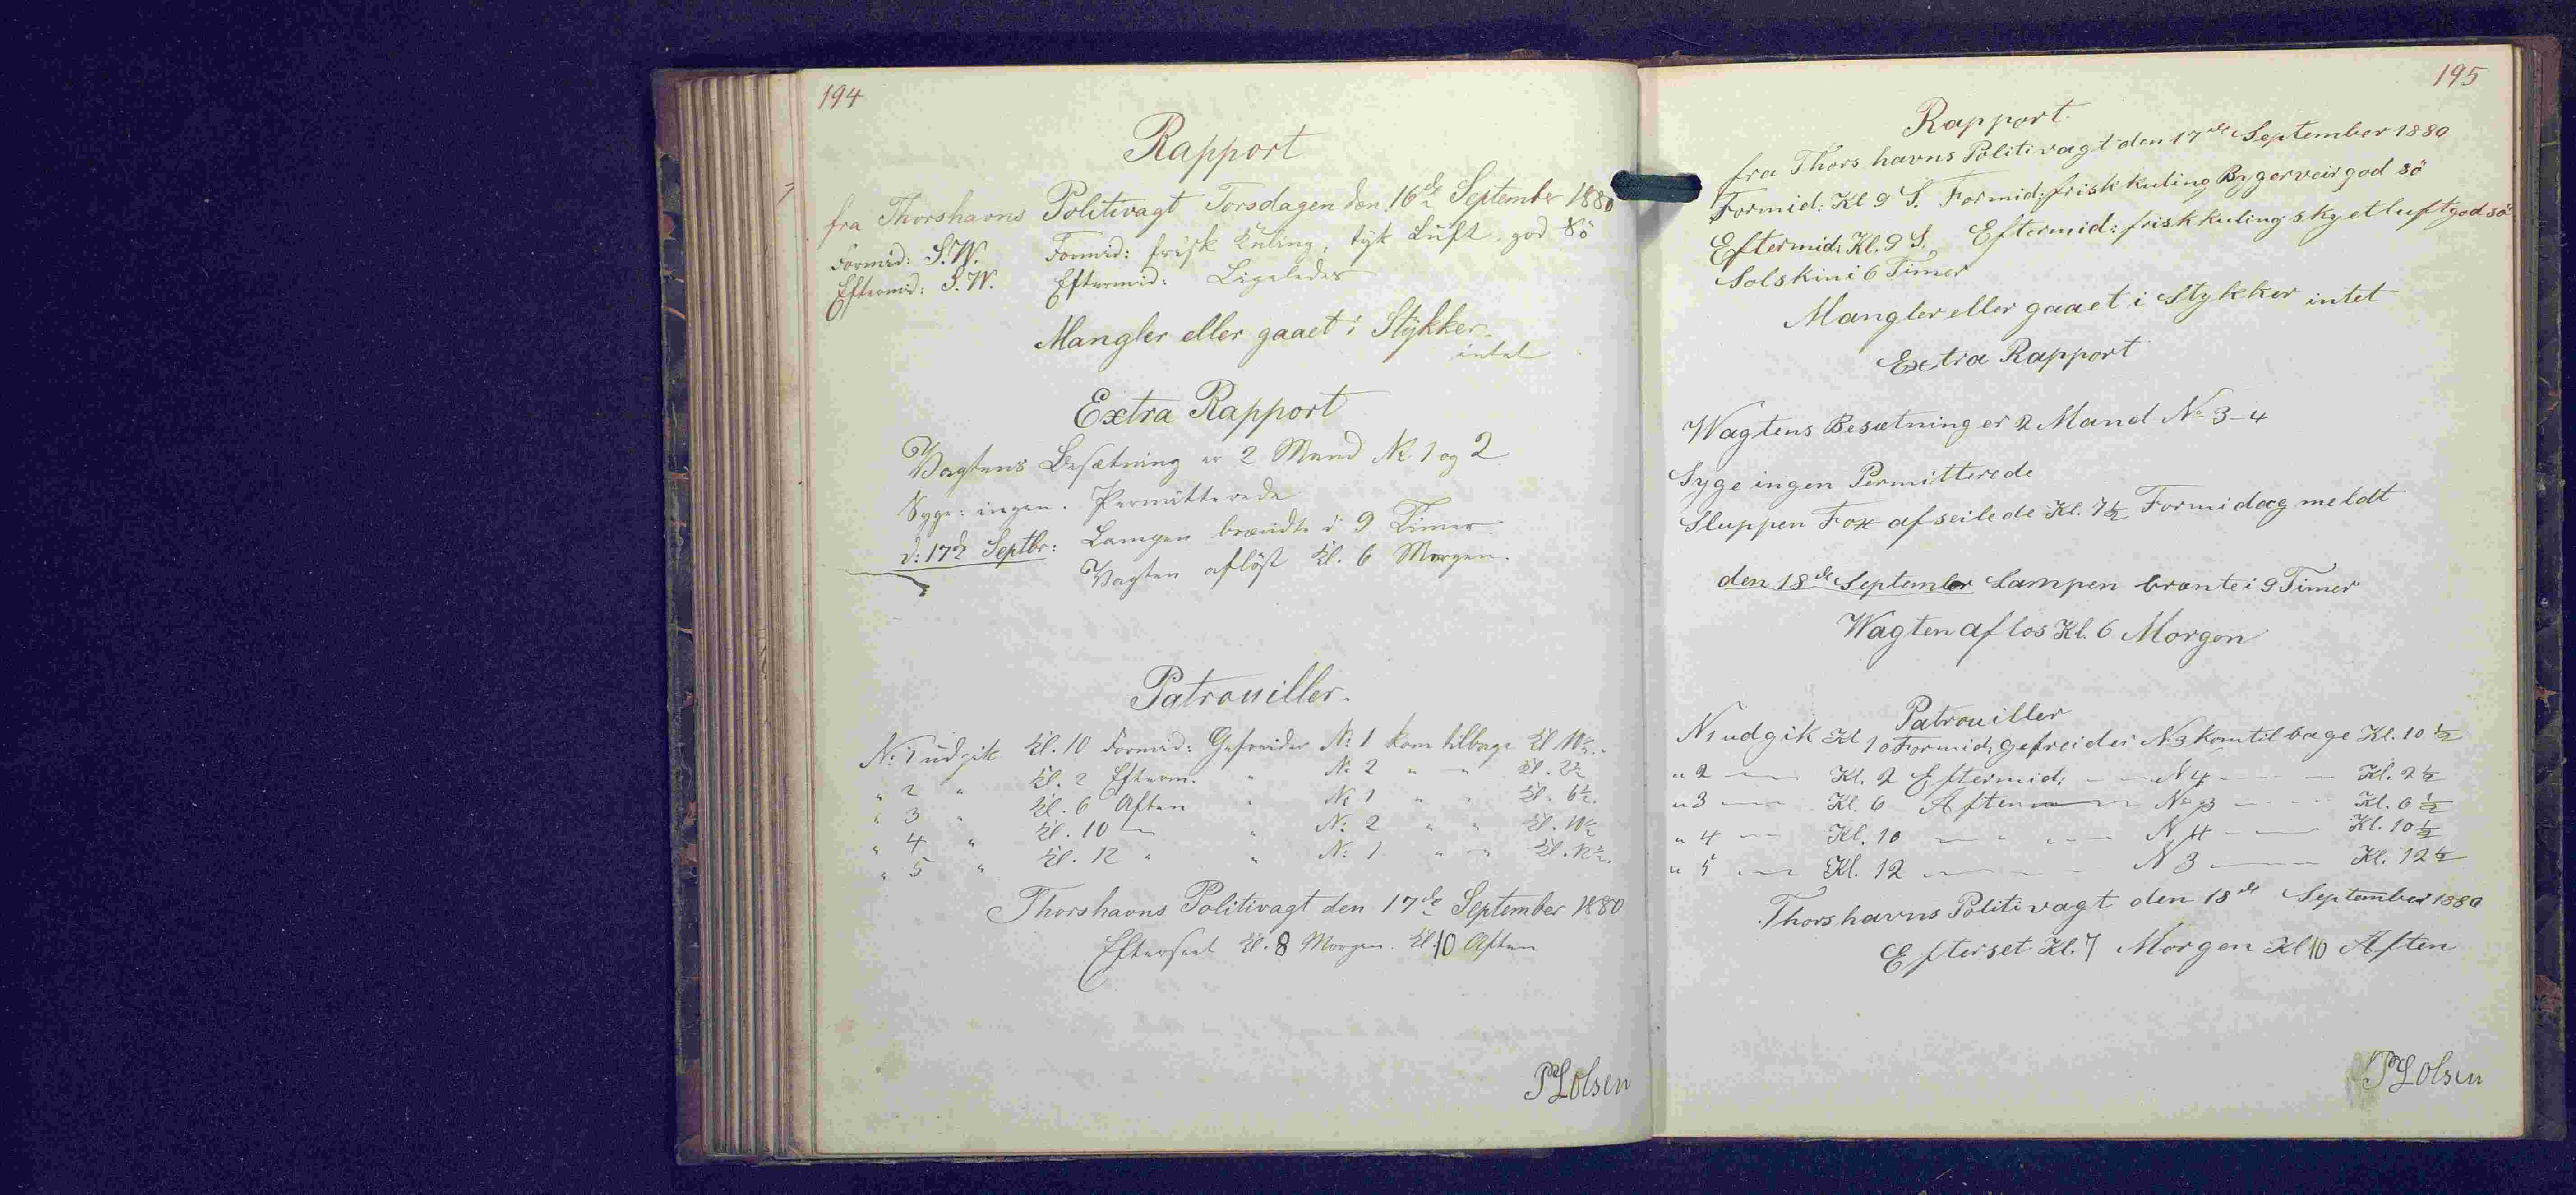 194
Rapport
fra Thorshavns Politivagt Torsdagen den 16de September 1880
Formid: S.W. Formid: frisk Kuling, tyk Luft. god Sö
Eftermid: S.W. Eftermid: Ligeledes
Mangler eller gaaet i Stykker
intet
Extra Rapport
Vagtens Besætning er 2 Mand No 1 og 2
Syge: ingen. Permitterede
d: 17d Septbr: Lampen brændte i 9 Timer.
Vagten aflöst Kl. 6 Morgen.
Patrouiller.
No: 1 udgik Kl. 10 Formid: Gefreider No: 1 kom tilbage Kl 10½.
" 2 " Kl. 2 Efterm. " No: 2 " " Kl. 2½
" 3 " Kl. 6 Aften " No: 1 " " Kl. 6½.
" 4 " Kl. 10 — " No: 2 " " Kl. 10½
" 5 " Kl. 12 " " No: 1 " " Kl. 12½.
Thorshavns Politivagt den 17de September 1880
Efterseet Kl. 8 Morgen. Kl. 10 Aften
PLOlsen
195
Rapport.
fra Thors havns Politivagt den 17de September 1880
Formid: Kl 9 S. Formid: frisk kuling Bygerveir god sö
Eftermid: Kl. 9 S. Eftermid: frisk kuling skyet luft god sö
Solskin i 6 Timer
Mangler eller gaaet i Stykker intet
Extra Rapport
Wagtens Besætning er 2 Mand No 3-4
Syge ingen Permitterede
Sluppen Fox afseilede Kl. 7½ Formidag meldt
den 18de September Lampen brænte i 9 Timer
Wagten aflos Kl. 6 Morgen
Patrouiller
N 1 udgik Kl 10 Formid: gefreider N 3 kom tilbage Kl. 10½
" 2 — Kl. 2 Eftermid: — — N 4 — — Kl. 2½
" 3 — Kl. 6 Aften — — No 3 — — Kl. 6½
" 4 — Kl. 10 — " — N 4 — — Kl. 10½
" 5 — Kl. 12 — — N 3 — Kl. 12½
Thorshavns Politivagt den 18de September 1880
Efterset Kl. 7 Morgen Kl 10 Aften
PLOlsen